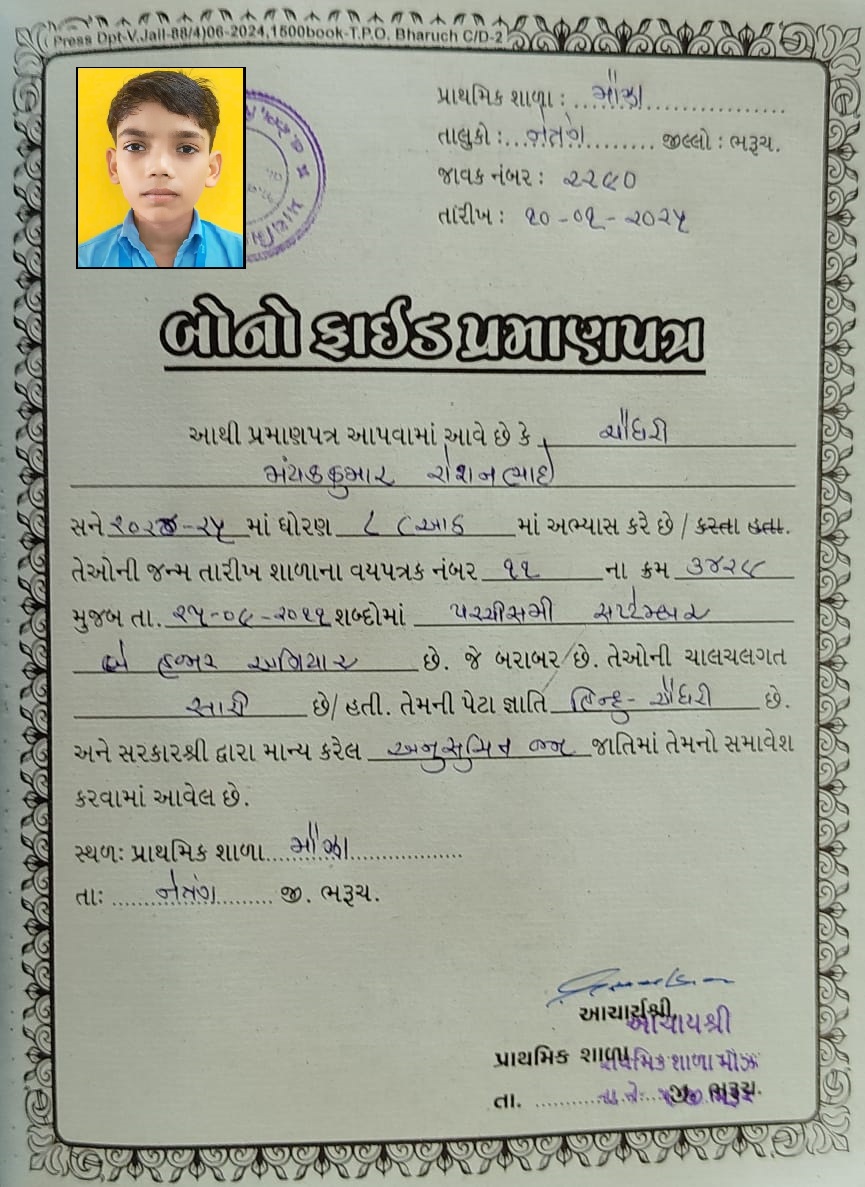 Press Dpt-V.Jail-88/4)06-2024,1500book-T.P.O. Bharuch C/D-2
પ્રાથમિક શાળા : મૌઝા
તાલુકો : નેત્રંગ જીલ્લો : ભરૂચ.
જાવક નંબર : ૨૨૯૦
તારીખ : ૧૦-૦૧-૨૦૨૫
બોનો ફાઈડ પ્રમાણપત્ર
આથી પ્રમાણપત્ર આપવામાં આવે છે કે ચૌધરી
મયંકકુમાર રોશનભાઈ
સને ૨૦૨૪-૨૫ માં ધોરણ ૮ (આઠ માં અભ્યાસ કરે છે / કરતા હતા.
તેઓની જન્મ તારીખ શાળાના વયપત્રક નંબર ૧૧ ના ક્રમ ૩૪૨૯
મુજબ તા. ૨૫-૦૯-૨૦૧૧ શબ્દોમાં પચ્ચીસમી સપ્ટેમ્બર
બે હજાર અગિયાર છે. જે બરાબર છે. તેઓની ચાલચલગત
સારી છે/ હતી. તેમની પેટા જ્ઞાતિ હિન્દુ- ચૌધરી છે.
અને સરકારશ્રી દ્વારા માન્ય કરેલ અનુસુચિત જન જાતિમાં તેમનો સમાવેશ
કરવામાં આવેલ છે.
સ્થળઃ પ્રાથમિક શાળા મૌઝા
તાઃ નેત્રંગ જી. ભરૂચ.
આચાર્યશ્રી,
આચાર્યશ્રી
પ્રાથમિક શાળા
પ્રાથમિક શાળા મૌઝા
તા. જી. ભરૂચ.